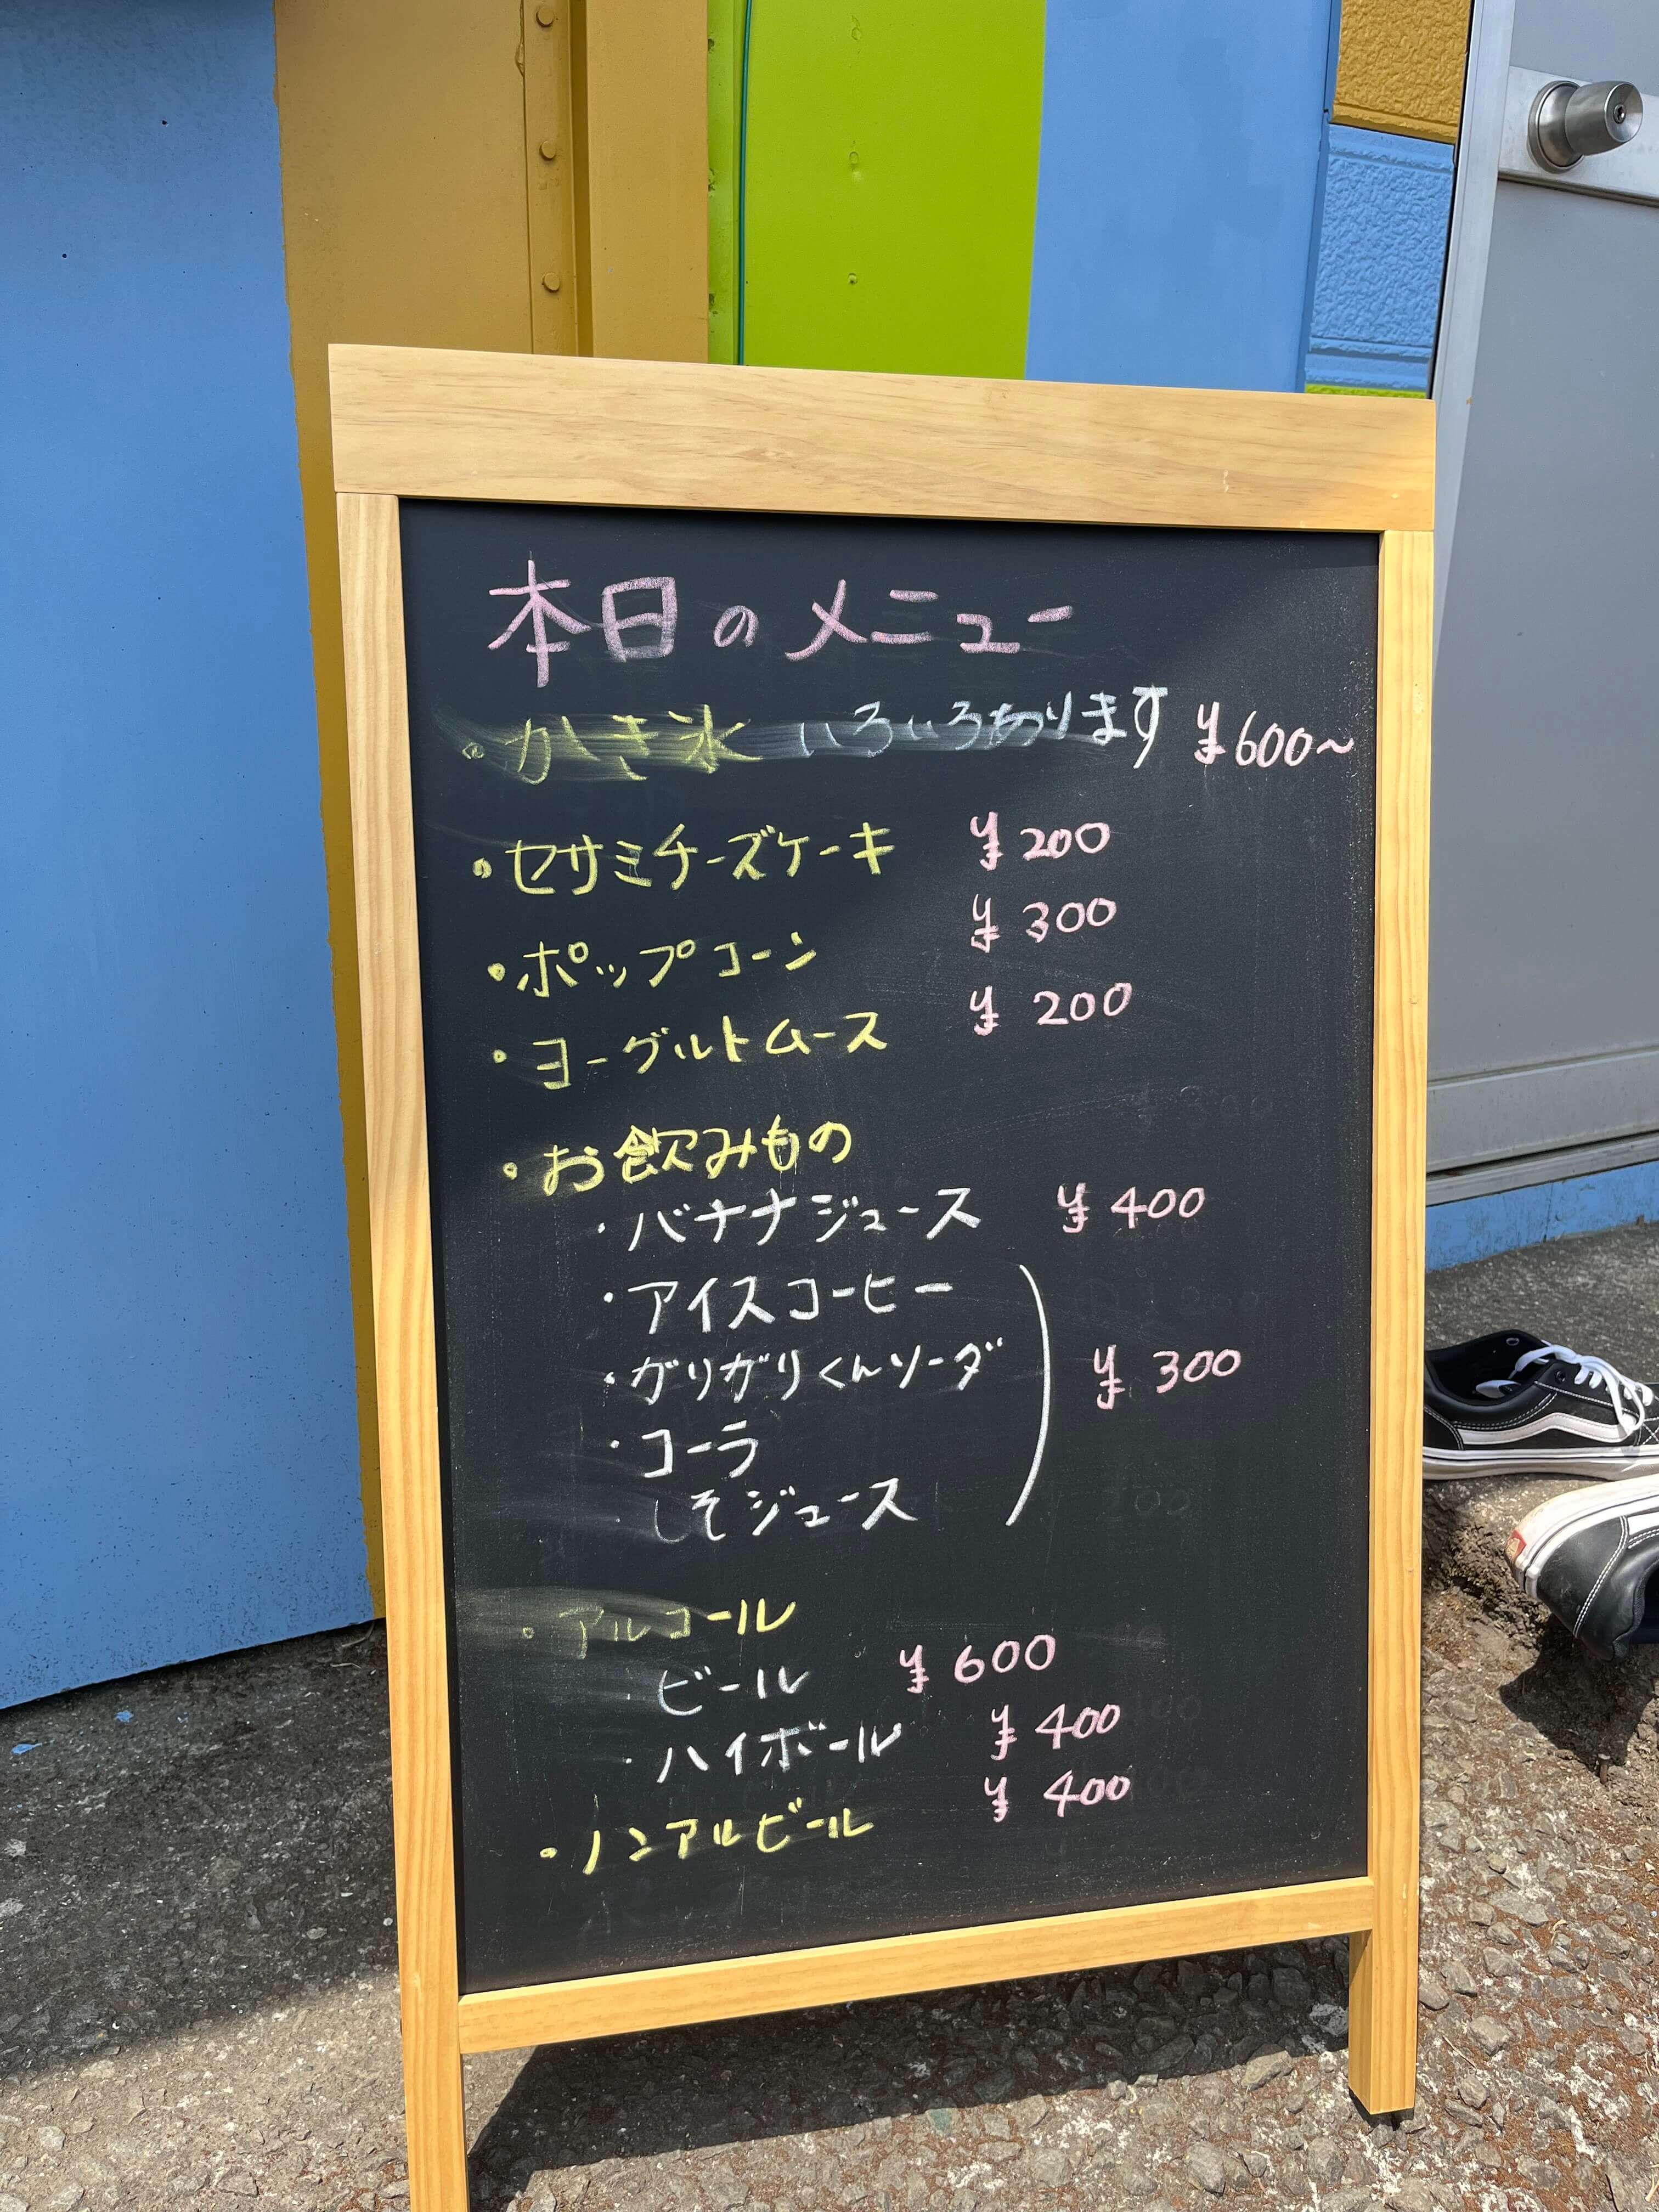 本日のメニュー
・かき氷 いろいろあります ¥600～
・セサミチーズケーキ ¥200
・ポップコーン ¥300
・ヨーグルトムース ¥200
・お飲みもの
・バナナジュース ¥400
・アイスコーヒー
・ガリガリくんソーダ ¥300
・コーラ
・しそジュース
・アルコール
・ビール ¥600
・ハイボール ¥400
・ノンアルビール ¥400